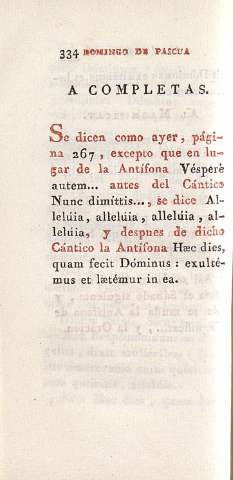 334 DOMINGO DE PASCUA
A COMPLETAS.
Se dicen como ayer, pági-
na 267, excepto que en lu-
gar de la Antífona Véspère
autem... antes del Cántico
Nunc dimíttis..., se dice Al-
lelúia, allelúia, allelúia, al-
lelúia, y despues de dicho
Cántico la Antífona Hæc dies,
quam fecit Dóminus: exulté-
mus et lætémur in ea.